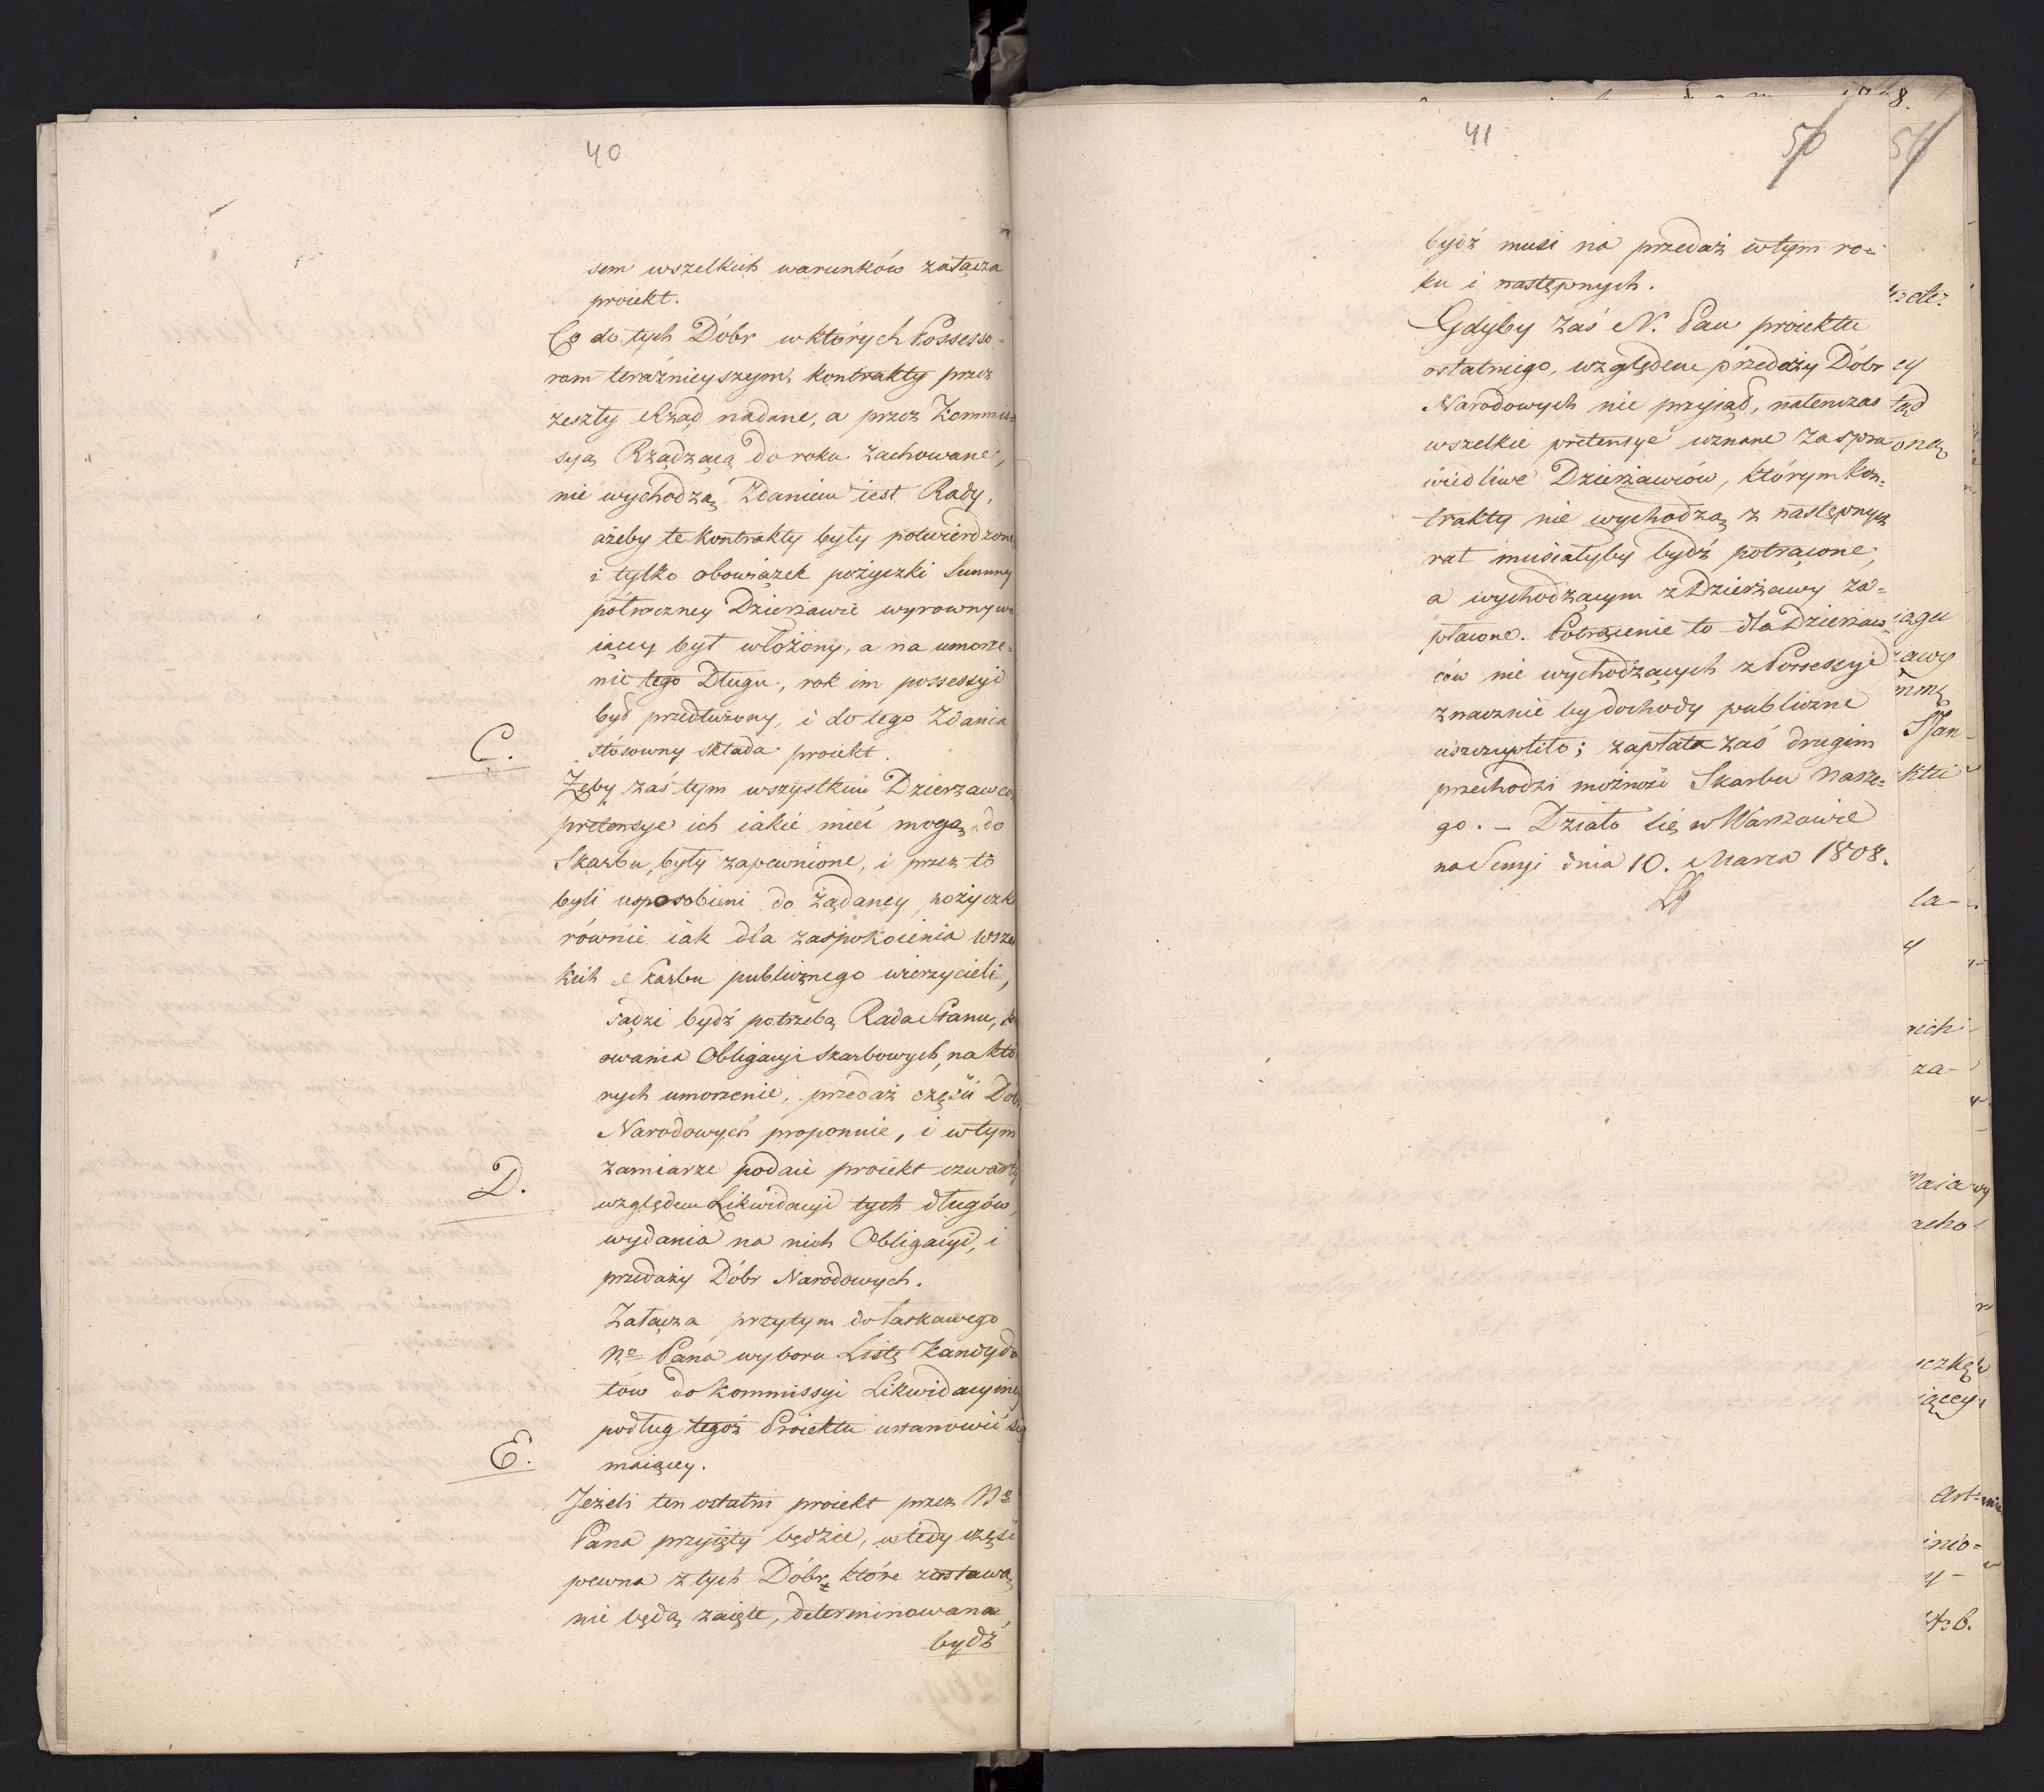 40
sem wszelkich warunków załącza
proiekt.
Co do tych Dóbr w których Possesso=
rom teraźnieyszym, kontrakty przez
zeszły Rząd nadane, a przez Kommis=
syą Rządzącą do roku zachowane,
nie wychodzą, Zdaniem iest Rady,
ażeby te kontrakty były potwierdzone
i tylko obowiązek pożyczki Summy
półroczney Dzierżawie wyrownywa
iącey był włożony, a na umorze=
nie tego Długu, rok im possessyi
był przedłużony, i do tego Zdania
C. stósowny składa proiekt.
Żeby zaś tym wszystkim Dzierzawcom
pretensye ich iakie mieć mogą, do
Skarbu, były zapewnione, i przez to
byli usposobieni do żądaney pożyczki
równie iak dla zaspokoienia wszel
kich Skarbu publicznego wierzycieli,
sądzi bydź potrzebą Rada Stanu,
owania Obligacyi skarbowych, na któ
rych umorzenie, przedaż części Dóbr
Narodowych proponuie, i w tym
D. zamiarze podaie proiekt czwarty
względem Likwidacyi tych długów,
wydania na nich Obligacyi, i
przedaży Dóbr Narodowych.
Załącza przytym do łaskawego
No Pana wyboru Listę Kandyda
tów do Kommissyi Likwidacyiney
podług tegoż Proiektu ustanowić się
E. maiącey.
Jeżeli ten ostatni proiekt przez No
Pana przyięty będzie, wtedy część
pewna z tych Dóbr, które zastawą
nie będą zaięte, determinowana,
bydź
41
50
bydź musi na przedaż w tym ro=
ku i następnych.
Gdyby zaś N. Pan proiektu
ostatniego, względem przedaży Dóbr
Narodowych nie przyiął, natenczas
wszelkie pretensye uznane za spra
wiedliwe Dzierżawców, którym kon=
trakty nie wychodzą z następnych
rat musiałyby bydź potrącone,
a wychodzącym z Dzierżawy za=
płacone. Potrącenie to dla Dzierżaw=
ców nie wychodzących z Possessyi
znacznie by dochody publiczne
uszczupliło; zapłata zaś drugim
przechodzi możność Skarbu Nasze=
go. – Działo się w Warszawie
na Sessyi dnia 10. Marca 1808.
8.
51
ey
ona
iagu
awy
Stan
ktu
la-
y
nich
za-
acho
iącey
Art=
4-